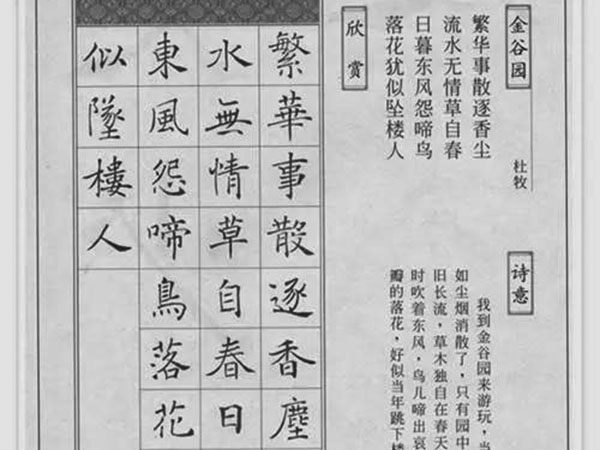 金谷园
杜牧
繁华事散逐香尘
流水无情草自春
日暮东风怨啼鸟
落花犹似坠楼人
诗意
我到金谷园来游玩，当
如尘烟消散了，只有园中
旧长流，草木独自在春天
时吹着东风，鸟儿啼出哀
瓣的落花，好似当年跳下楼
欣赏
繁華事散逐香塵
水無情草自春日
東風怨啼鳥落花
似墜樓人